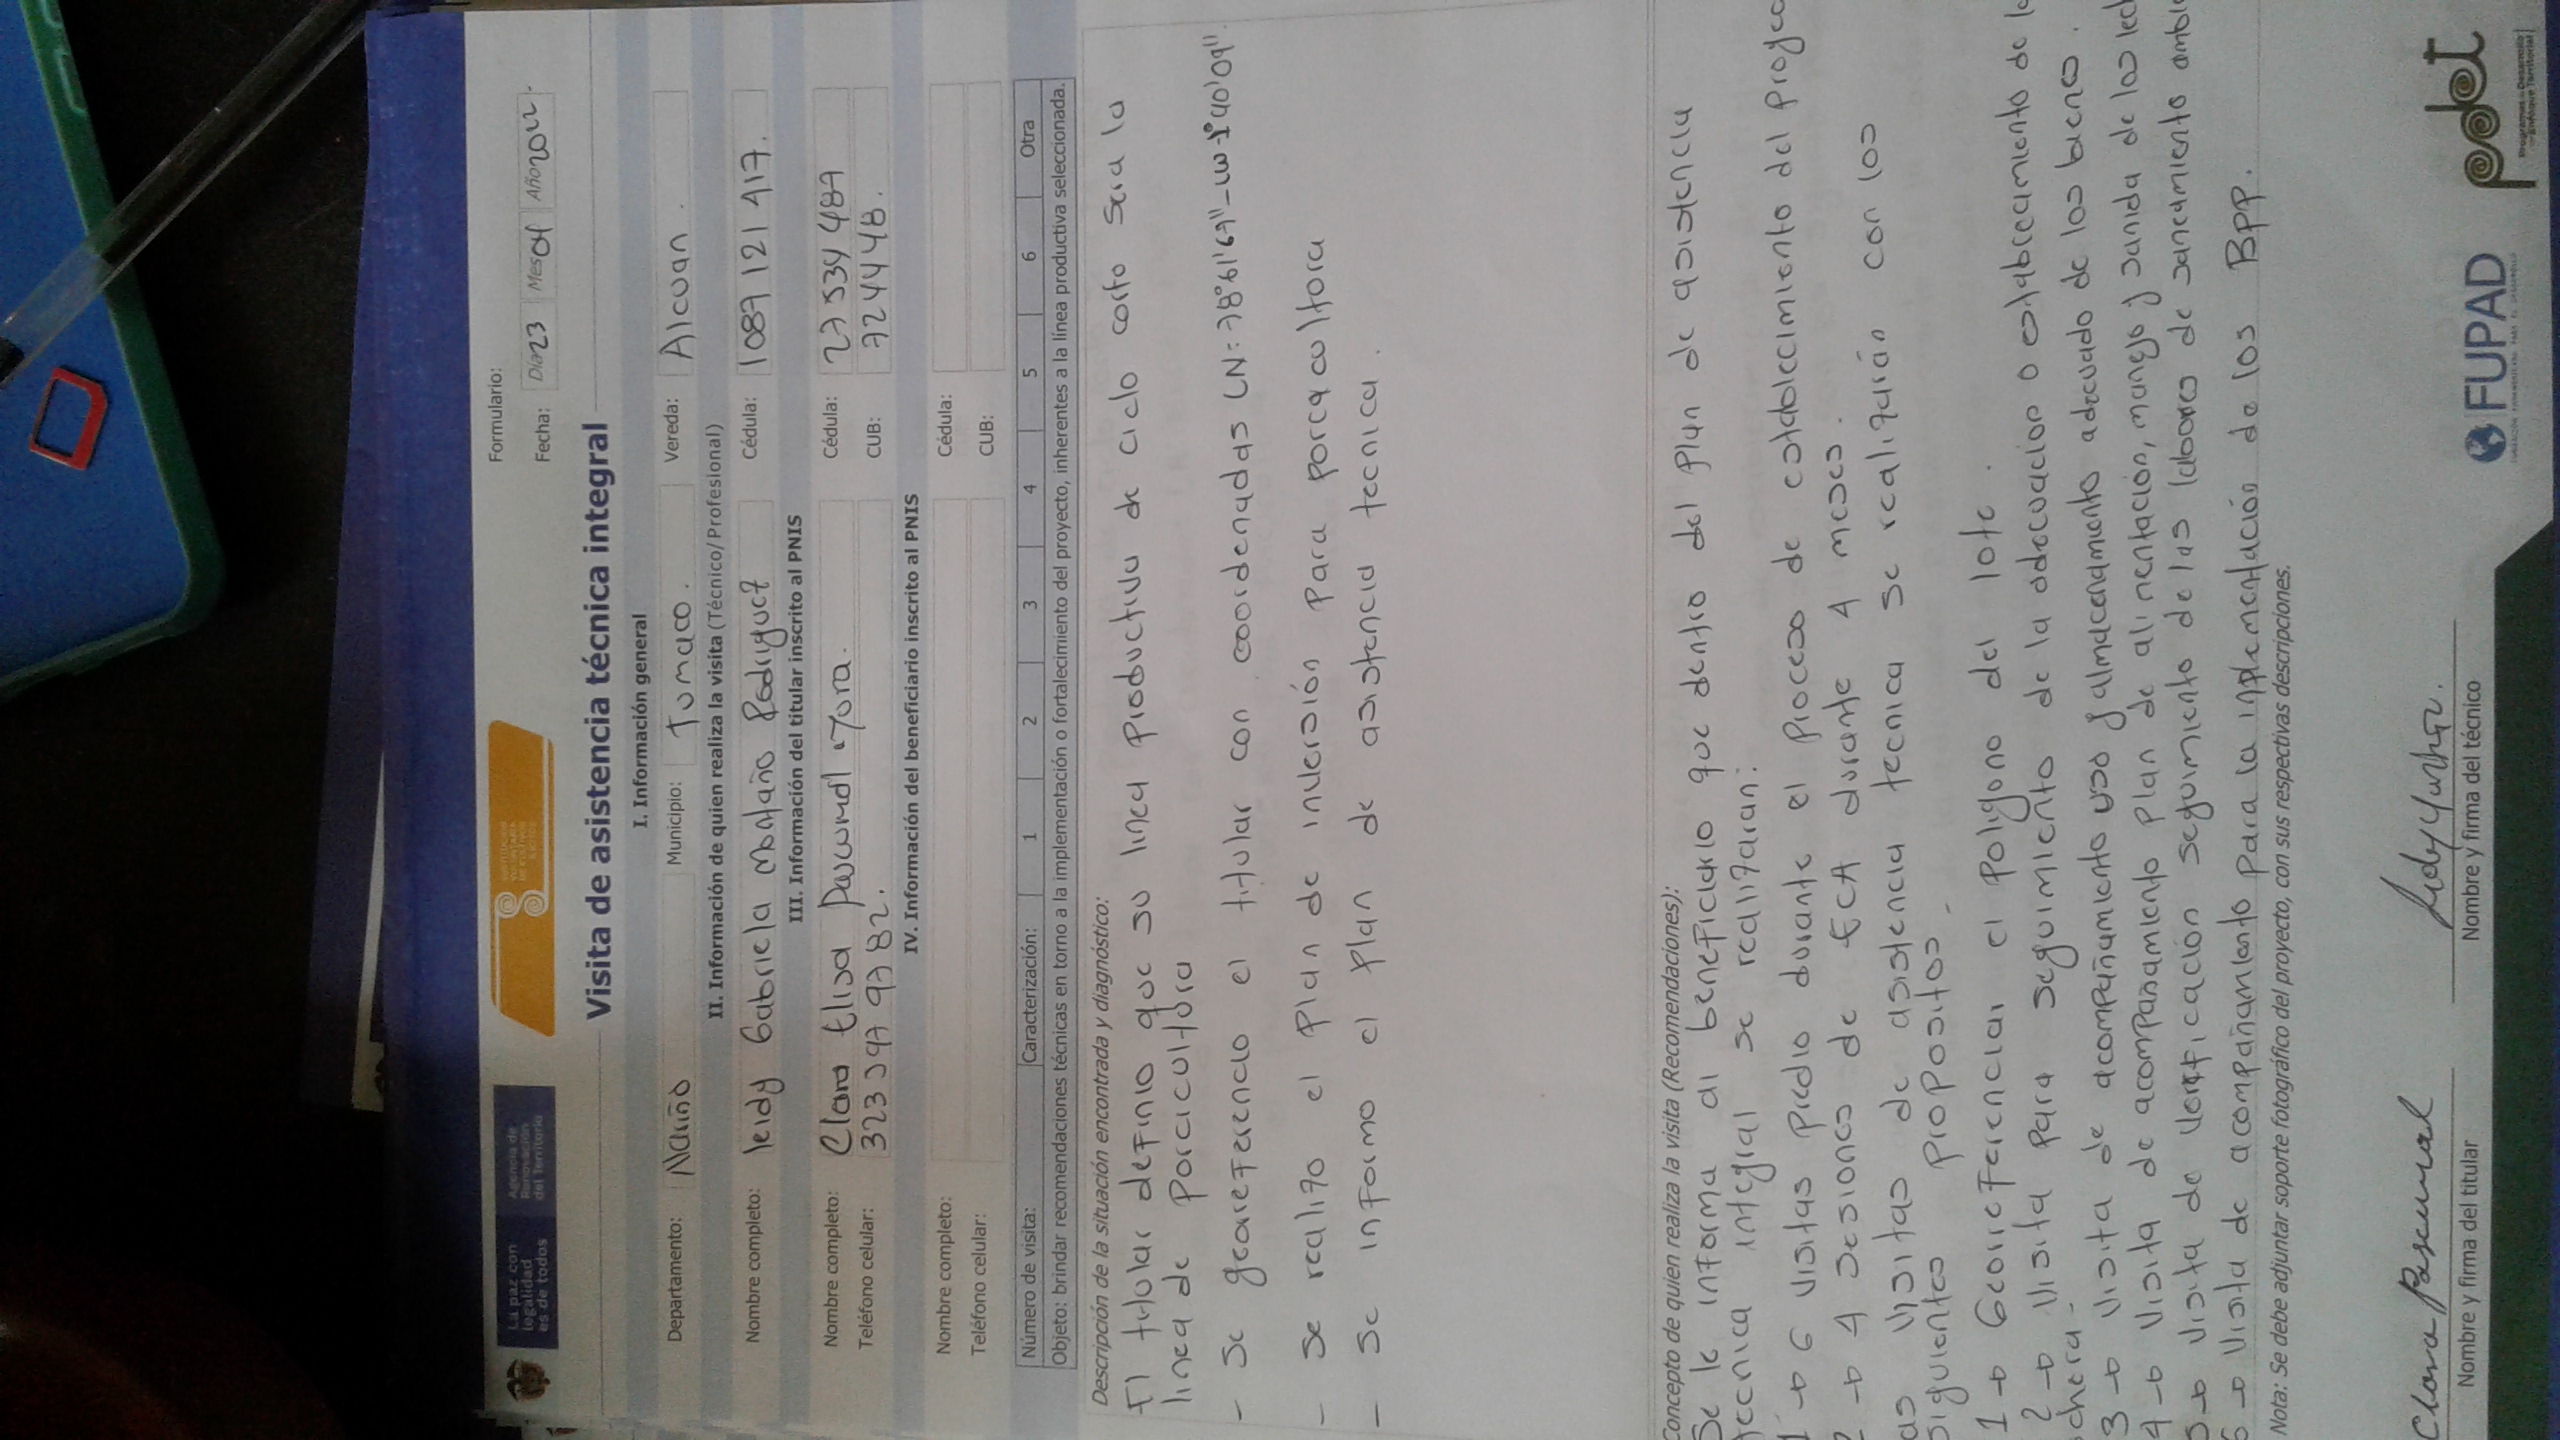 La paz con
legalidad
es de todos
Agencia de
Renovación
del Territorio
Formulario:
Fecha: Día 23 Mes 04 Año 2022.
Visita de asistencia técnica integral
I. Información general
Departamento: Nariño Municipio: Tumaco. Vereda: Alcuan.
II. Información de quien realiza la visita (Técnico/Profesional)
Nombre completo: leidy Gabriela Montaño Rodriguez Cédula: 1087 121 417.
III. Información del titular inscrito al PNIS
Nombre completo: Clara Elisa Pascual Cédula: 27 534 487
Teléfono celular: 323 397 97 82. CUB: 7244448.
IV. Información del beneficiario inscrito al PNIS
Nombre completo: Cédula:
Teléfono celular: CUB:
Número de visita: Caracterización: 1 2 3 4 5 6 Otra
Objeto: brindar recomendaciones técnicas en torno a la implementación o fortalecimiento del proyecto, inherentes a la línea productiva seleccionada.
Descripción de la situación encontrada y diagnóstico:
El titular definio que su linea productiva de ciclo corto sera la
linea de Porcicultora
- Se georeferencio el titular con coordenadas LN: 78°61'67"-LW
- Se realizo el Plan de inversión Para Porcacultora
- Se informo el Plan de asistencia tecnica.
Concepto de quien realiza la visita (Recomendaciones):
Se le informa al beneficiario que dentro del Plan de asistencia
tecnica integral se realizaran:
1 → 6 visitas Predio durante el Proceso de establecimiento del Proyec
2 → 4 sesiones de ECA durante 4 meses.
as visitas de asistencia tecnica se realizarán con los
siguientes Propositos.
1 → Georreferenciar el Poligono del lote.
2 → Visita Para seguimiento de la adecuacion o establecimiento de l
chera-
3 → Visita de acompañamiento uso y almacenamiento adecuado de los bienes.
4 → Visita de acompasamiento Plan de alimentación, manejo y sanida de los lec
5 → Visita de verificación seguimiento de las labores de saneamiento ambie
6 → Visita de acompañamiento Para la implementación de los BPP.
Nota: Se debe adjuntar soporte fotográfico del proyecto, con sus respectivas descripciones.
Clara Pascual
Nombre y firma del titular
Nombre y firma del técnico
FUPAD
pdet
Programas de Desarrollo
con Enfoque Territorial